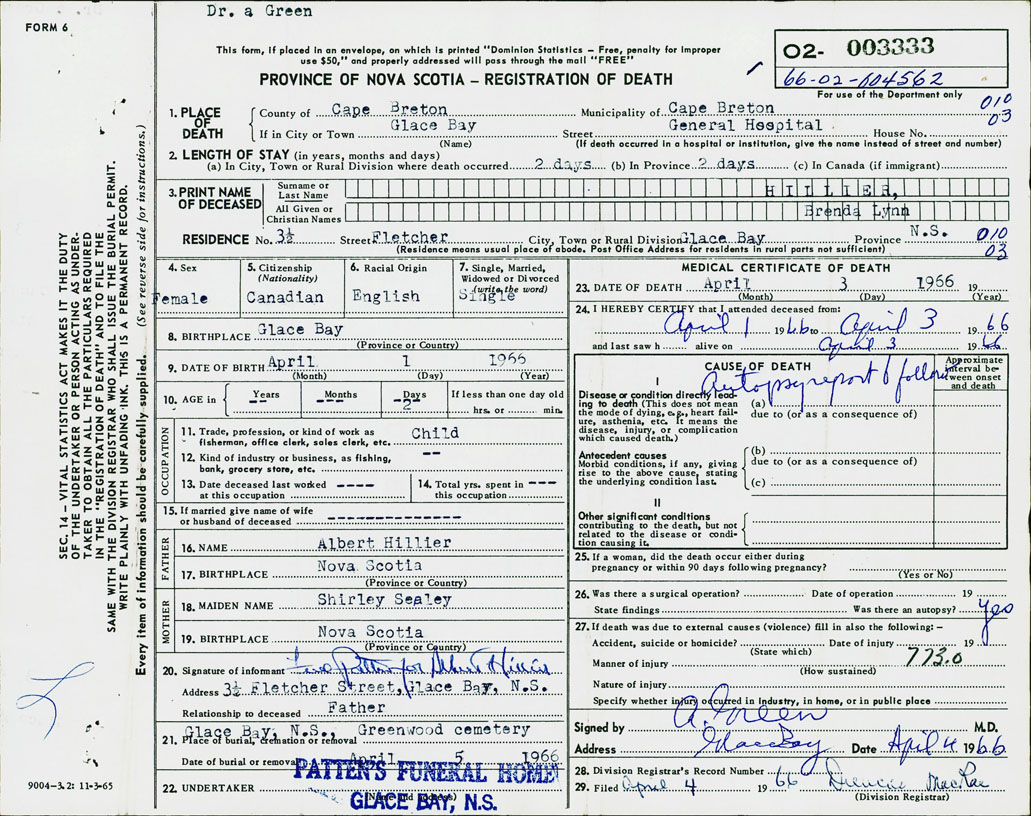 Dr. a Green
FORM 6
This form, if placed in an envelope, on which is printed "Dominion Statistics – Free, penalty for improper
use $50," and properly addressed will pass through the mail "FREE"
PROVINCE OF NOVA SCOTIA – REGISTRATION OF DEATH
O2- 003333
66-02-004562
For use of the Department only
010
03
1. PLACE OF DEATH
County of Cape Breton Municipality of Cape Breton
If in City or Town Glace Bay Street General Hospital House No.
(Name) (If death occurred in a hospital or institution, give the name instead of street and number)
2. LENGTH OF STAY (in years, months and days)
(a) In City, Town or Rural Division where death occurred 2 days (b) In Province 2 days (c) In Canada (if immigrant)
3. PRINT NAME OF DECEASED
Surname or Last Name HILLIER,
All Given or Christian Names Brenda Lynn
RESIDENCE No. 3½ Street Fletcher City, Town or Rural Division Glace Bay Province N.S. 010
03
(Residence means usual place of abode. Post Office Address for residents in rural parts not sufficient)
4. Sex Female
5. Citizenship (Nationality) Canadian
6. Racial Origin English
7. Single, Married, Widowed or Divorced (write the word) Single
8. BIRTHPLACE Glace Bay
(Province or Country)
9. DATE OF BIRTH April 1 1966
(Month) (Day) (Year)
10. AGE in Years -- Months -- Days 2 If less than one day old hrs. or min.
OCCUPATION
11. Trade, profession, or kind of work as fisherman, office clerk, sales clerk, etc. Child
12. Kind of industry or business, as fishing, bank, grocery store, etc. --
13. Date deceased last worked at this occupation ----
14. Total yrs. spent in this occupation ---
15. If married give name of wife or husband of deceased --------------
FATHER
16. NAME Albert Hillier
17. BIRTHPLACE Nova Scotia
(Province or Country)
MOTHER
18. MAIDEN NAME Shirley Sealey
19. BIRTHPLACE Nova Scotia
(Province or Country)
20. Signature of informant Patten for Albert Hillier
Address 3½ Fletcher Street, Glace Bay, N.S.
Relationship to deceased Father
21. Place of burial, cremation or removal Glace Bay, N.S., Greenwood cemetery
Date of burial or removal April 5 1966
22. UNDERTAKER PATTEN'S FUNERAL HOME
(Name and address)
GLACE BAY, N.S.
MEDICAL CERTIFICATE OF DEATH
23. DATE OF DEATH April 3 1966 19
(Month) (Day) (Year)
24. I HEREBY CERTIFY that I attended deceased from:
April 1 1966 to April 3 1966
and last saw h alive on April 3 1966
CAUSE OF DEATH
Approximate interval between onset and death
I
Autopsy report to follow
Disease or condition directly leading to death (This does not mean the mode of dying, e.g., heart failure, asthenia, etc. It means the disease, injury, or complication which caused death.)
(a)
due to (or as a consequence of)
Antecedent causes
Morbid conditions, if any, giving rise to the above cause, stating the underlying condition last.
(b)
due to (or as a consequence of)
(c)
II
Other significant conditions contributing to the death, but not related to the disease or condition causing it.
25. If a woman, did the death occur either during pregnancy or within 90 days following pregnancy?
(Yes or No)
26. Was there a surgical operation? Date of operation 19
State findings Was there an autopsy? yes
27. If death was due to external causes (violence) fill in also the following:–
Accident, suicide or homicide? Date of injury 19
(State which)
Manner of injury 773.0
(How sustained)
Nature of injury
Specify whether injury occurred in industry, in home, or in public place
Signed by A. Green M.D.
Address Glace Bay Date April 4 1966
28. Division Registrar's Record Number
29. Filed April 4 1966 MacRae
(Division Registrar)
SEC. 14 – VITAL STATISTICS ACT MAKES IT THE DUTY
OF THE UNDERTAKER OR PERSON ACTING AS UNDER-
TAKER TO OBTAIN ALL THE PARTICULARS REQUIRED
IN THE "REGISTRATION OF DEATH" AND TO FILE THE
SAME WITH THE DIVISION REGISTRAR WHO SHALL ISSUE THE BURIAL PERMIT.
WRITE PLAINLY WITH UNFADING INK. THIS IS A PERMANENT RECORD.
Every item of information should be carefully supplied. (See reverse side for instructions.)
9004-3.2: 11-3-65